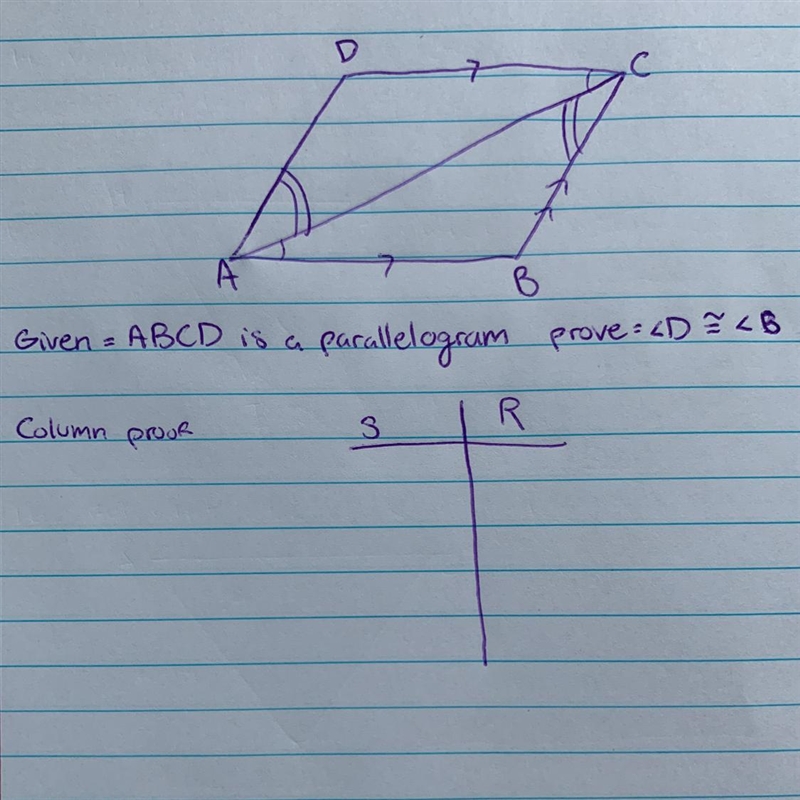 D
C
A
B
Given = ABCD is a parallelogram prove = ∠D ≅ ∠B
Column proof
S R